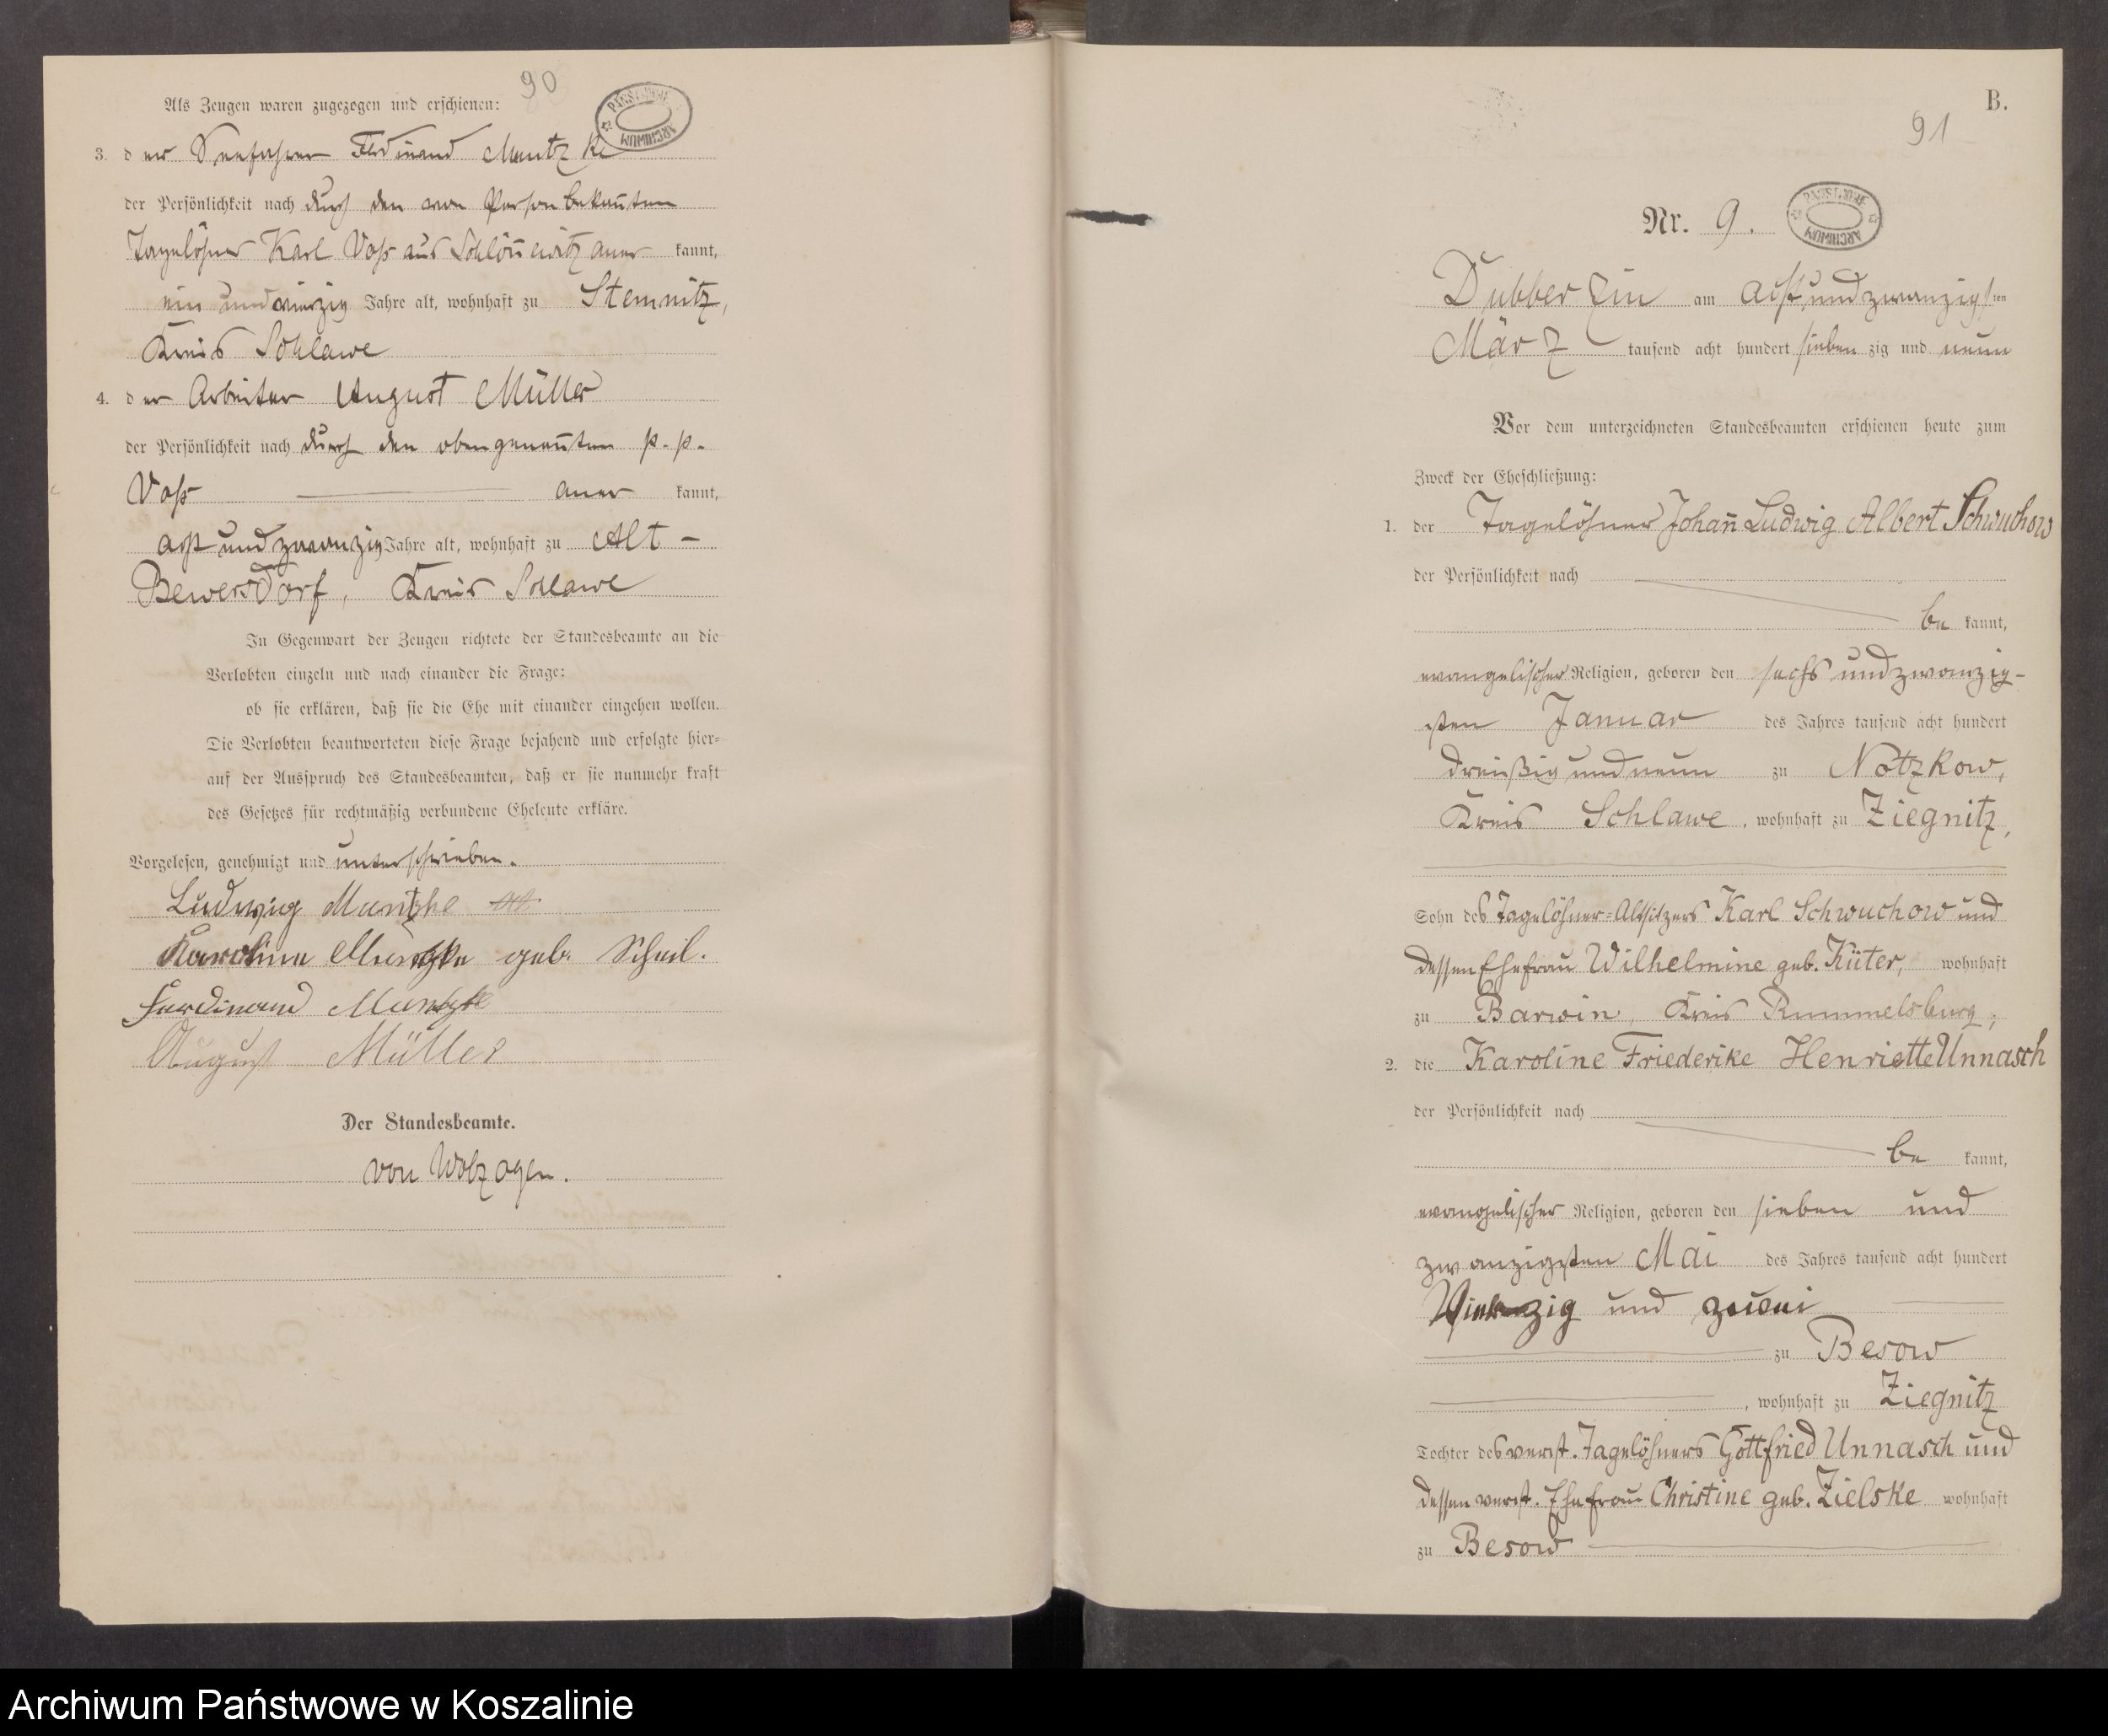 90
Als Zeugen waren zugezogen und erschienen:
3. der Seefahrer Ferdinand Mantzke
der Persönlichkeit nach durch den von Person bekannten
Tagelöhner Karl Voß aus Schlönwitz aner kannt,
ein und vierzig Jahre alt, wohnhaft zu Stemnitz,
Kreis Schlawe
4. der Arbeiter August Müller
der Persönlichkeit nach durch den obengenannten p. p.
Voß aner kannt,
acht und zwanzig Jahre alt, wohnhaft zu Alt-
Bewersdorf, Kreis Schlawe
In Gegenwart der Zeugen richtete der Standesbeamte an die
Verlobten einzeln und nach einander die Frage:
ob sie erklären, daß sie die Ehe mit einander eingehen wollen.
Die Verlobten beantworteten diese Frage bejahend und erfolgte hier-
auf der Ausspruch des Standesbeamten, daß er sie nunmehr kraft
des Gesetzes für rechtmäßig verbundene Eheleute erkläre.
Vorgelesen, genehmigt und unterschrieben.
Ludwig Mantzke
Karoline Mantzke geb. Scheil.
Ferdinand Mantzke
August Müller
Der Standesbeamte.
von Wolzogen.
B.
91
Nr. 9.
ARCHIWUM
Dubberzin am acht und zwanzigsten
März tausend acht hundert siebenzig und neun
Vor dem unterzeichneten Standesbeamten erschienen heute zum
Zweck der Eheschließung:
1. der Tagelöhner Johann Ludwig Albert Schwuchow
der Persönlichkeit nach
be kannt,
evangelischer Religion, geboren den sechs und zwanzig-
sten Januar des Jahres tausend acht hundert
dreißig und neun zu Notzkow,
Kreis Schlawe, wohnhaft zu Ziegnitz,
Sohn des Tagelöhner-Altsitzers Karl Schwuchow und
dessen Ehefrau Wilhelmine geb. Küter, wohnhaft
zu Barwin, Kreis Rummelsburg;
2. die Karoline Friederike Henriette Unnasch
der Persönlichkeit nach
be kannt,
evangelischer Religion, geboren den sieben und
zwanzigsten Mai des Jahres tausend acht hundert
Vierzig und zwei
zu Besow
, wohnhaft zu Ziegnitz
Tochter des verst. Tagelöhners Gottfried Unnasch und
dessen verst. Ehefrau Christine geb. Zielske wohnhaft
zu Besow
Archiwum Państwowe w Koszalinie